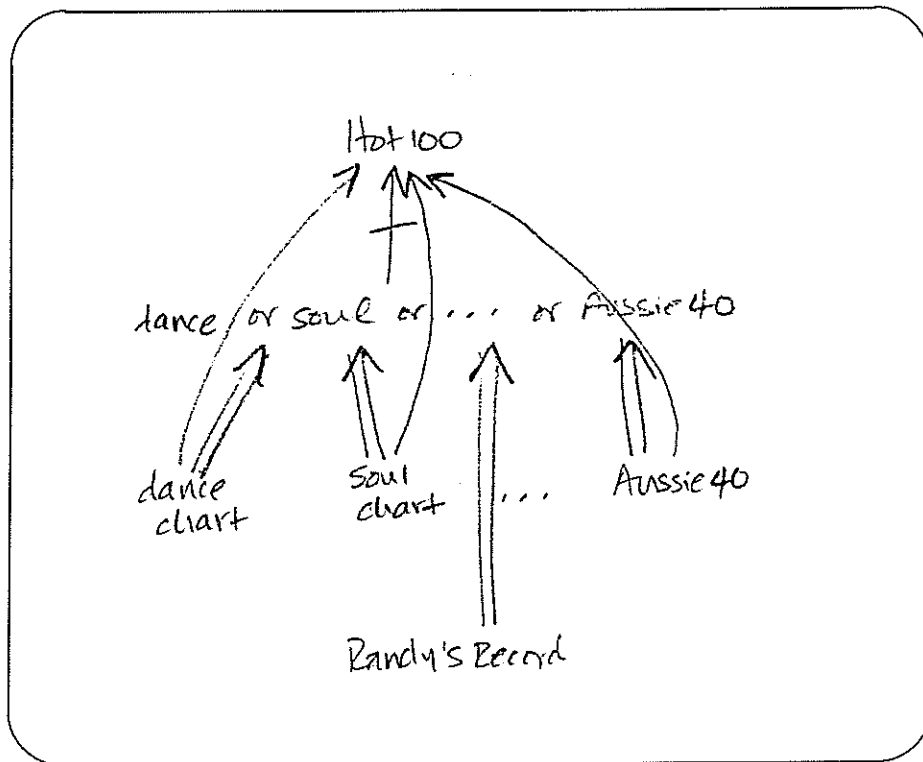 Hot 100
dance or soul or ... or Aussie 40
dance chart
soul chart
...
Aussie 40
Randy's Record